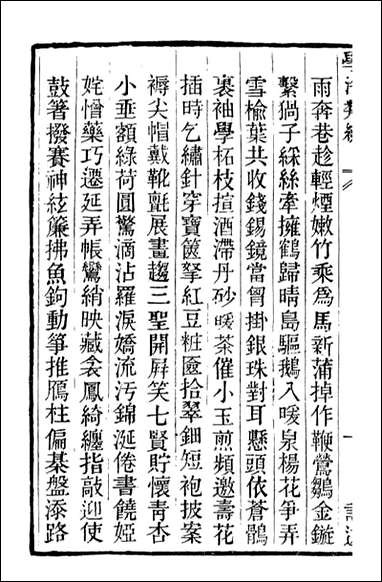 雨奔巷趁輕煙嫩竹乘為馬新蒲掉作鞭鶯鶵金鏇
繫猧子綵絲牽擁鶴歸晴島驅鵝入暖泉楊花爭弄
雪榆葉共收錢錫鏡當胷掛銀珠對耳懸頭依蒼鶻
裹袖學柘枝揎酒滯丹砂暖茶催小玉煎頻邀壽花
插時乞繡針穿寶篋拏紅豆粧匳拾翠鈿短袍披案
褥尖帽戴靴氈展畫趨三聖開屏笑七賢貯懷青杏
小垂額綠荷圓驚滴沾羅淚嬌流汚錦涎倦書饒婭
姹憎藥巧遷延弄帳鸞綃映藏衾鳳綺纏指敲迎使
鼓箸撥賽神絃簾拂魚鉤動箏推鴈柱偏棊盤添路